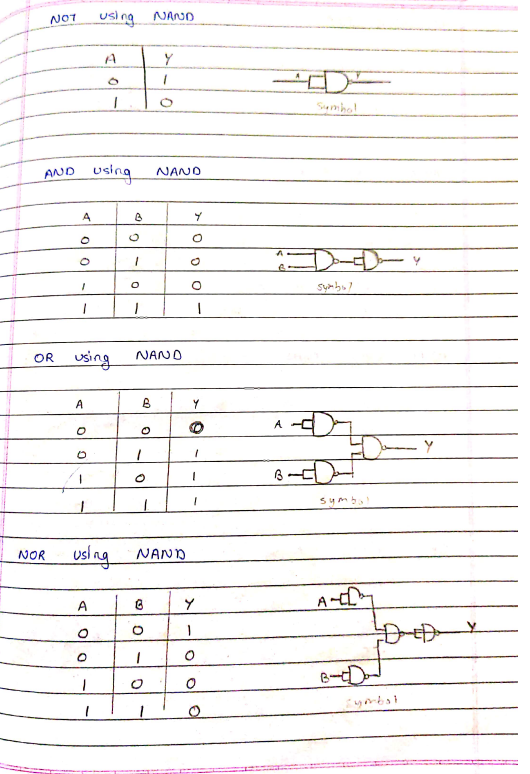 NOT using NAND
A Y
0 1
1 0
A Y
symbol
AND using NAND
A B Y
0 0 0
0 1 0
1 0 0
1 1 1
A
B
Y
symbol
OR using NAND
A B Y
0 0 0
0 1 1
1 0 1
1 1 1
A
B
Y
symbol
NOR using NAND
A B Y
0 0 1
0 1 0
1 0 0
1 1 0
A
B
Y
symbol